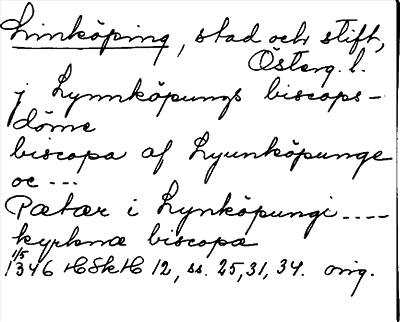 Linköping, stad och stift,
Österg. l.
j Lynnköpungs biscops-
döme
biscopa af Lyunköpunge
oc ---
Pætær i Lynköpungi ----
kyrknæ biscopa
1/5 1346 HSkH 12, ss. 25, 31, 34. orig.